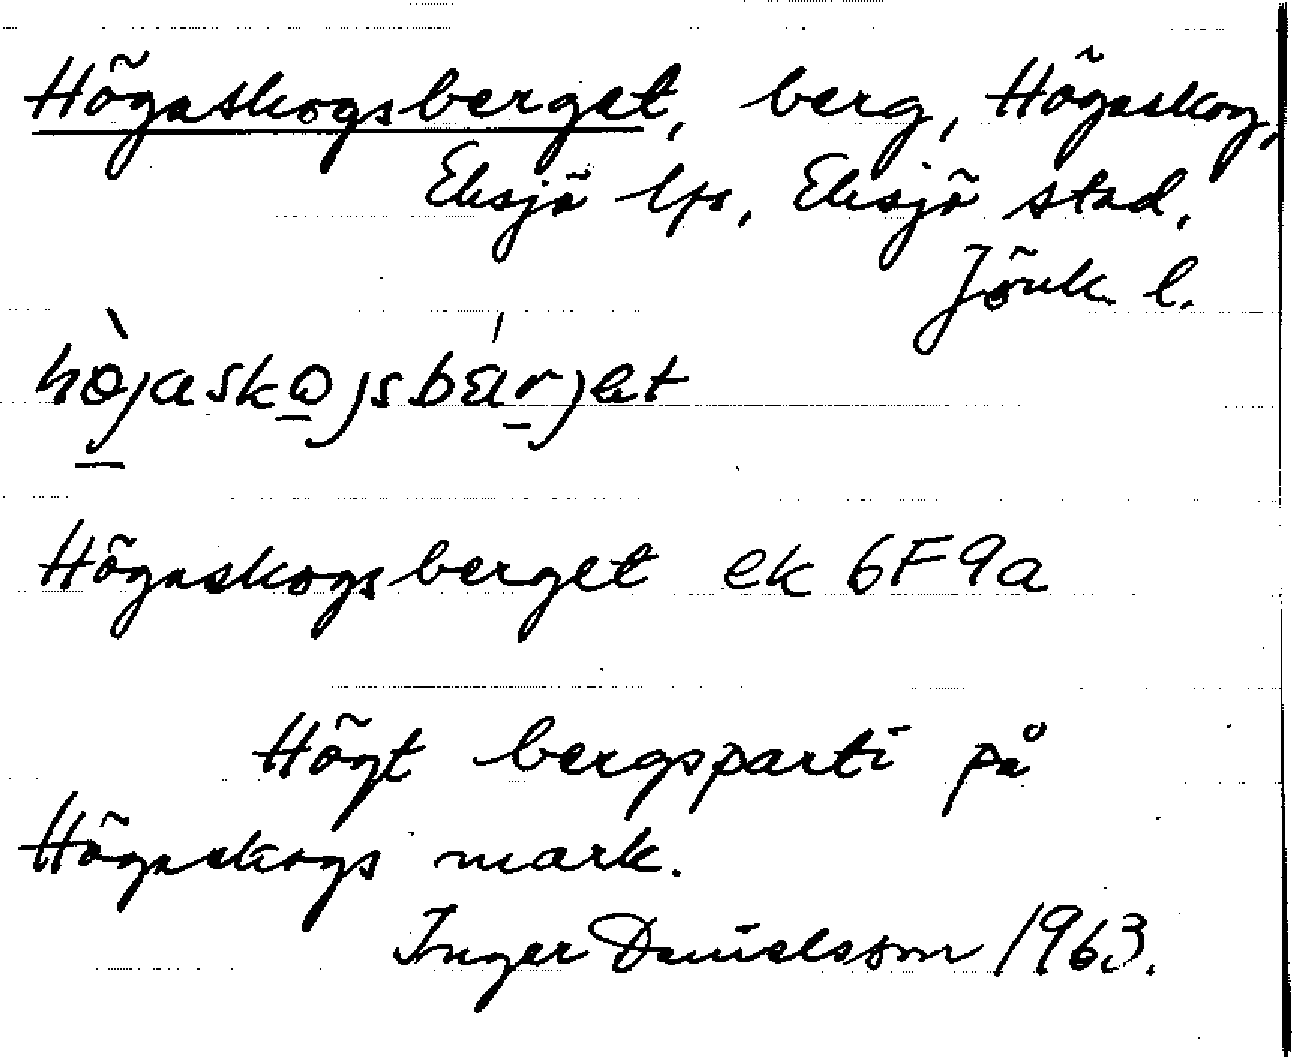 Högaskogsberget, berg, Högaskog,
Eksjö lfs, Eksjö stad,
Jönk l.
Högaskogsberget ek 6F9a
Högt bergsparti på
Högaskogs mark.
Inger Danielsson 1963.